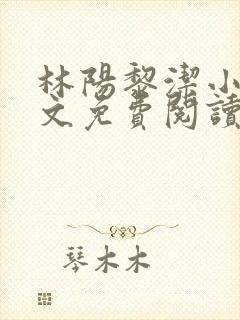 林陽黎潔小
文免費閱讀
琴木木